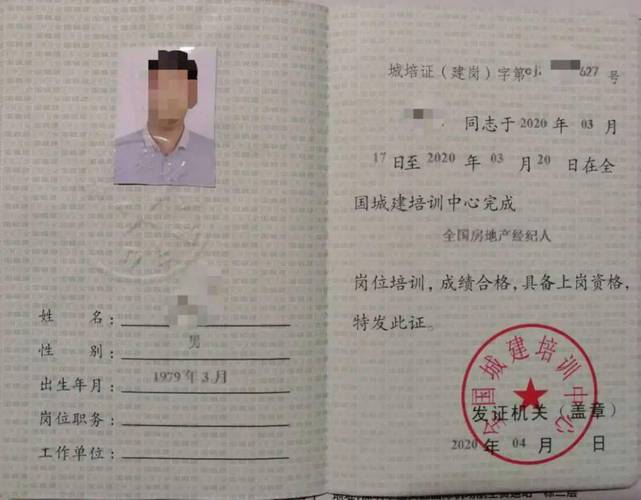 姓名：
性别：男
出生年月：1979年3月
岗位职务：
工作单位：
城培证（建岗）字第cj. 627号
同志于2020年03月
17日至2020年03月20日在全
国城建培训中心完成
全国房地产经纪人
岗位培训，成绩合格，具备上岗资格，
特发此证。
全国城建培训中心
发证机关（盖章）
2020年04月 日